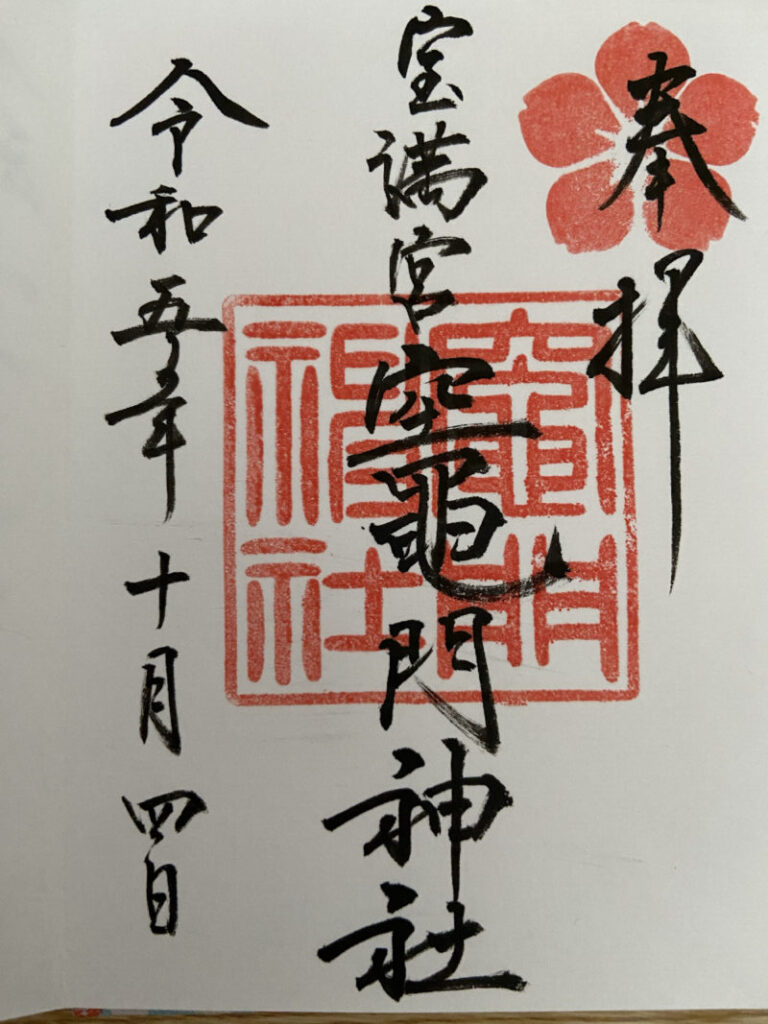 奉拝
宝満宮竈門神社
竈門
神社
令和五年十月四日